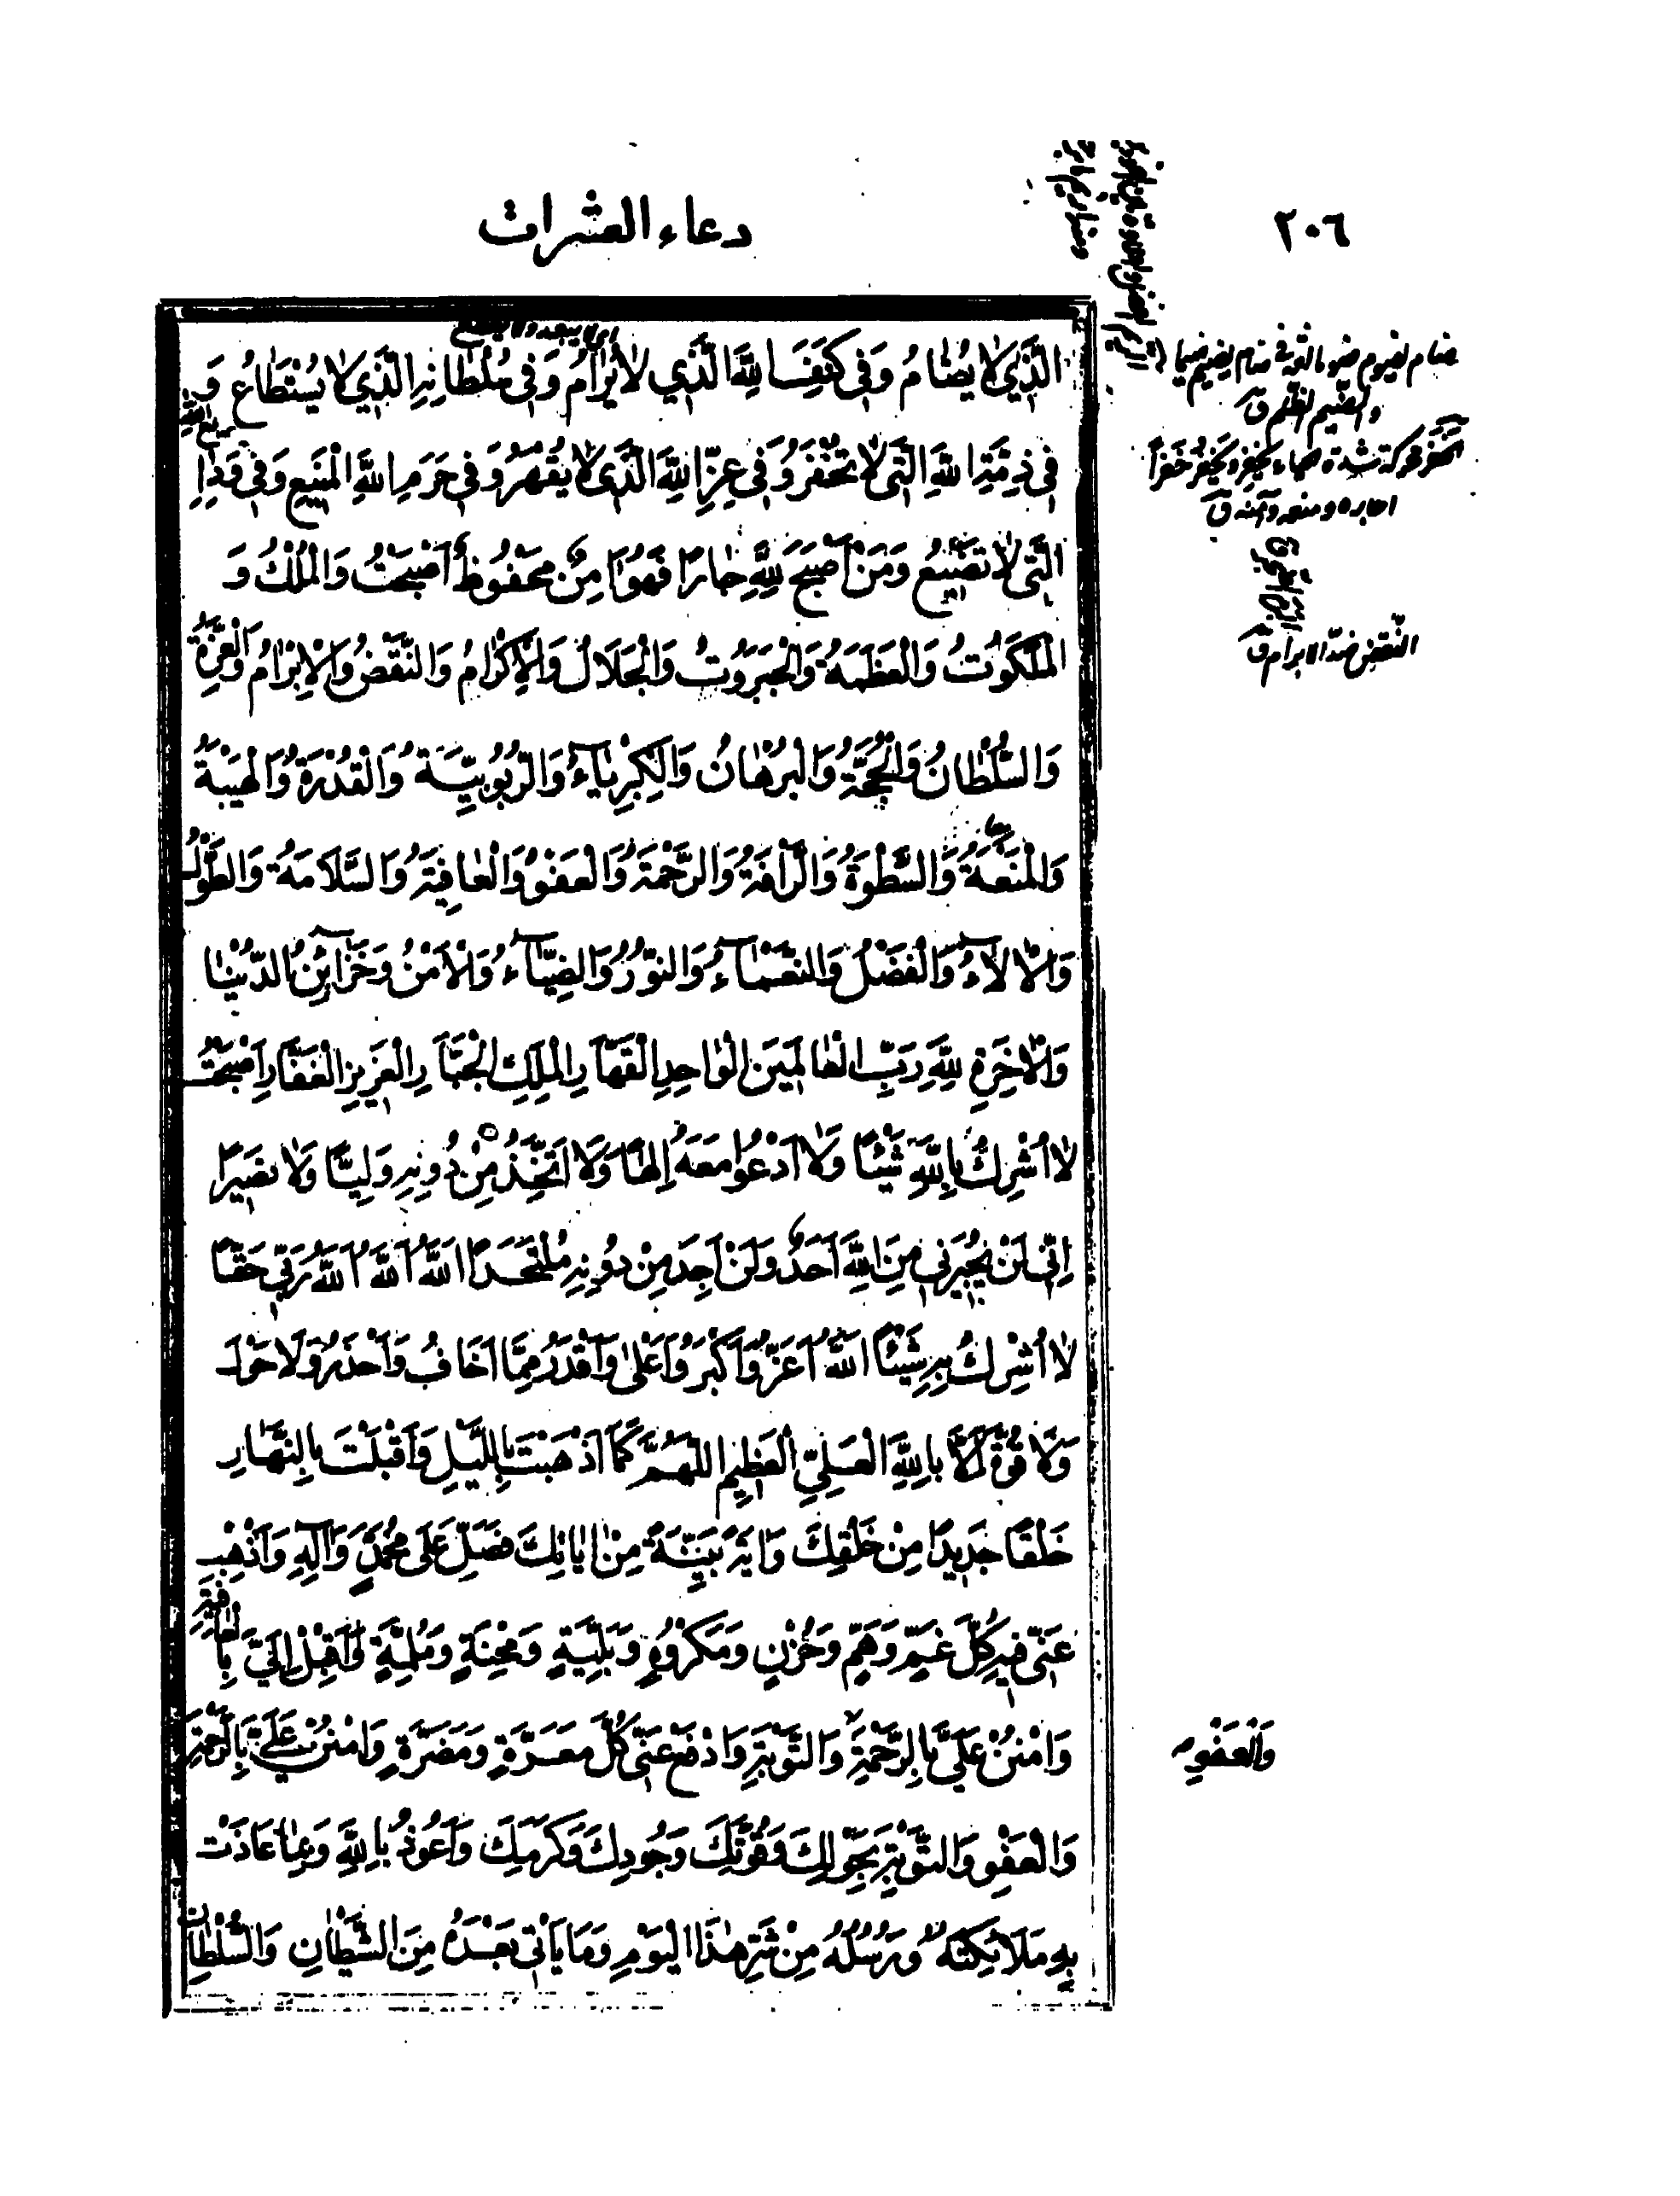 ٢٠٦
دعاء العشرات
الَّذِي لَا يُضَامُ وَفِي كَنَفِ اللَّهِ الَّذِي لَا يُرَامُ وَفِي سُلْطَانِهِ الَّذِي لَا يُسْتَطَاعُ وَ
فِي ذِمَّةِ اللَّهِ الَّتِي لَا تُخْفَرُ وَفِي عِزِّ اللَّهِ الَّذِي لَا يُقْهَرُ وَفِي حَرَمِ اللَّهِ الْمَنِيعِ وَفِي وَدَائِعِ اللَّهِ
الَّتِي لَا تَضِيعُ وَمَنْ أَصْبَحَ لِلَّهِ جَارًا فَهُوَ آمِنٌ مَحْفُوظٌ أَصْبَحْتُ وَالْمُلْكُ وَ
الْمَلَكُوتُ وَالْعَظَمَةُ وَالْجَبَرُوتُ وَالْجَلَالُ وَالْإِكْرَامُ وَالنَّقْضُ وَالْإِبْرَامُ وَالْعِزَّةُ
وَالسُّلْطَانُ وَالْحُجَّةُ وَالْبُرْهَانُ وَالْكِبْرِيَاءُ وَالرُّبُوبِيَّةُ وَالْقُدْرَةُ وَالْهَيْبَةُ
وَالْمَنَعَةُ وَالسَّطْوَةُ وَالرَّأْفَةُ وَالرَّحْمَةُ وَالْعَفْوُ وَالْعَافِيَةُ وَالسَّلَامَةُ وَالطَّوْلُ
وَالْآلَاءُ وَالْفَضْلُ وَالنَّعْمَاءُ وَالنُّورُ وَالضِّيَاءُ وَالْأَمْنُ وَخَزَائِنُ الدُّنْيَا
وَالْآخِرَةِ لِلَّهِ رَبِّ الْعَالَمِينَ الْوَاحِدِ الْقَهَّارِ الْمَلِكِ الْجَبَّارِ الْعَزِيزِ الْغَفَّارِ أَصْبَحْتُ
لَا أُشْرِكُ بِاللَّهِ شَيْئًا وَلَا أَدْعُو مَعَهُ إِلٰهًا وَلَا أَتَّخِذُ مِنْ دُونِهِ وَلِيًّا وَلَا نَصِيرًا
إِنِّي لَنْ يُجِيرَنِي مِنَ اللَّهِ أَحَدٌ وَلَنْ أَجِدَ مِنْ دُونِهِ مُلْتَحَدًا اَللَّهُ اَللَّهُ اَللَّهُ رَبِّي حَقًّا
لَا أُشْرِكُ بِهِ شَيْئًا اللَّهُ أَعَزُّ وَأَكْبَرُ وَأَعْلَىٰ وَأَقْدَرُ مِمَّا أَخَافُ وَأَحْذَرُ وَلَا حَوْلَ
وَلَا قُوَّةَ إِلَّا بِاللَّهِ الْعَلِيِّ الْعَظِيمِ اللَّهُمَّ كَمَا أَذْهَبْتَ بِاللَّيْلِ وَأَقْبَلْتَ بِالنَّهَارِ
خَلْقًا جَدِيدًا مِنْ خَلْقِكَ وَآيَةً بَيِّنَةً مِنْ آيَاتِكَ فَصَلِّ عَلَى مُحَمَّدٍ وَآلِهِ وَأَذْهِبْ
عَنِّي فِيهِ كُلَّ غَمٍّ وَهَمٍّ وَحُزْنٍ وَمَكْرُوهٍ وَبَلِيَّةٍ وَمِحْنَةٍ وَمُلِمَّةٍ وَأَقْبِلْ إِلَيَّ بِالْعَافِيَةِ
وَامْنُنْ عَلَيَّ بِالرَّحْمَةِ وَالتَّوْبَةِ وَادْفَعْ عَنِّي كُلَّ مَعَرَّةٍ وَمَضَرَّةٍ وَامْنُنْ عَلَيَّ بِالرَّحْمَةِ
وَالْعَفْوِ وَالتَّوْبَةِ بِحَوْلِكَ وَقُوَّتِكَ وَجُودِكَ وَكَرَمِكَ وَأَعُوذُ بِاللَّهِ وَبِمَا عَاذَتْ
بِهِ مَلَائِكَتُهُ وَرُسُلُهُ مِنْ شَرِّ هٰذَا الْيَوْمِ وَمَا يَأْتِي بَعْدَهُ مِنَ الشَّيْطَانِ وَالسُّلْطَانِ
والضيم الظلم ق
النقض ضد الابرام ق
وَالْعَفْوِ